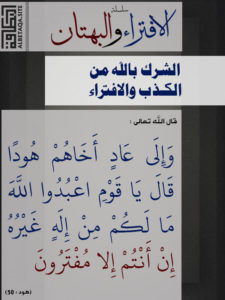 سلسلة
الافتراء والبهتان
الشرك بالله من
الكذب والافتراء
قال الله تعالى :
وَإِلَى عَادٍ أَخَاهُمْ هُودًا
قَالَ يَا قَوْمِ اعْبُدُوا اللَّهَ
مَا لَكُمْ مِنْ إِلَهٍ غَيْرُهُ
إِنْ أَنْتُمْ إِلَّا مُفْتَرُونَ
(هود : 50)
البطاقة
ALBETAQA-SITE